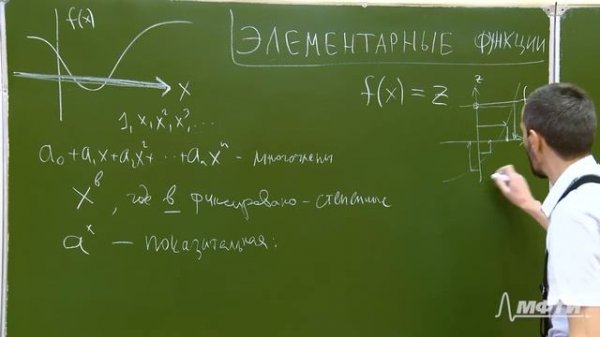 f(x)
x
ЭЛЕМЕНТАРНЫЕ ФУНКЦИИ
f(x) = z
z
1, x, x², x³, ...
a₀+a₁x+a₂x²+ ··· +aₙxⁿ - многочлены
xᵇ, где в фиксировано - степенные
aˣ — показательная:
МФТИ